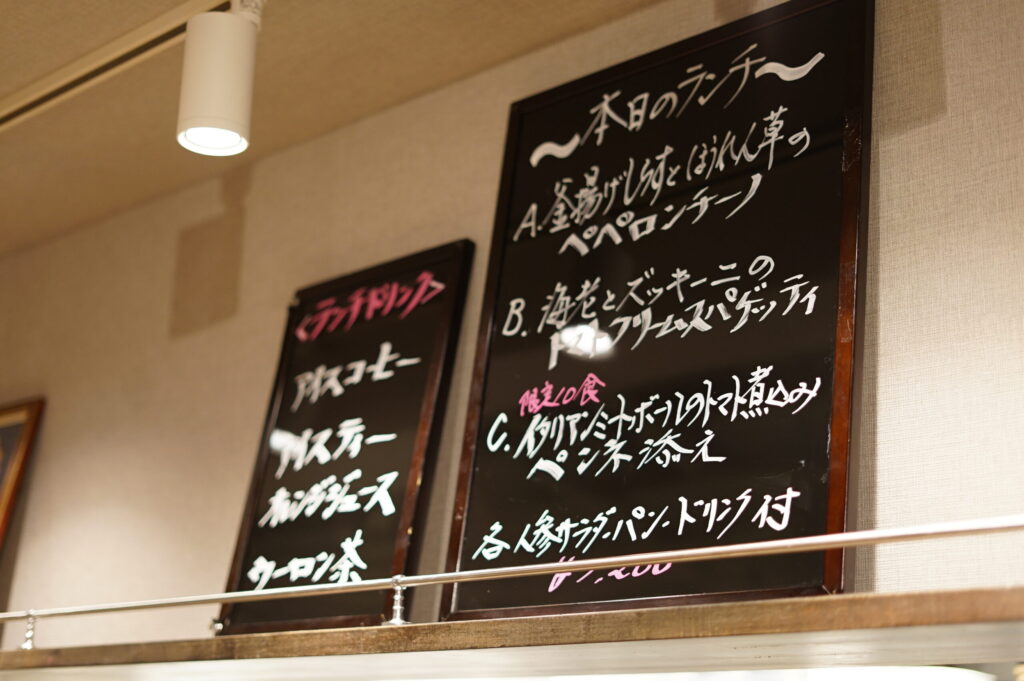 <ランチドリンク>
アイスコーヒー
アイスティー
オレンジジュース
ウーロン茶
〜本日のランチ〜
A. 釜揚げしらすとほうれん草の
ペペロンチーノ
B. 海老とズッキーニの
トマトクリームスパゲッティ
限定10食
C. イタリアンミートボールのトマト煮込み
ペンネ添え
各人参サラダ・パン・ドリンク付
¥1,200